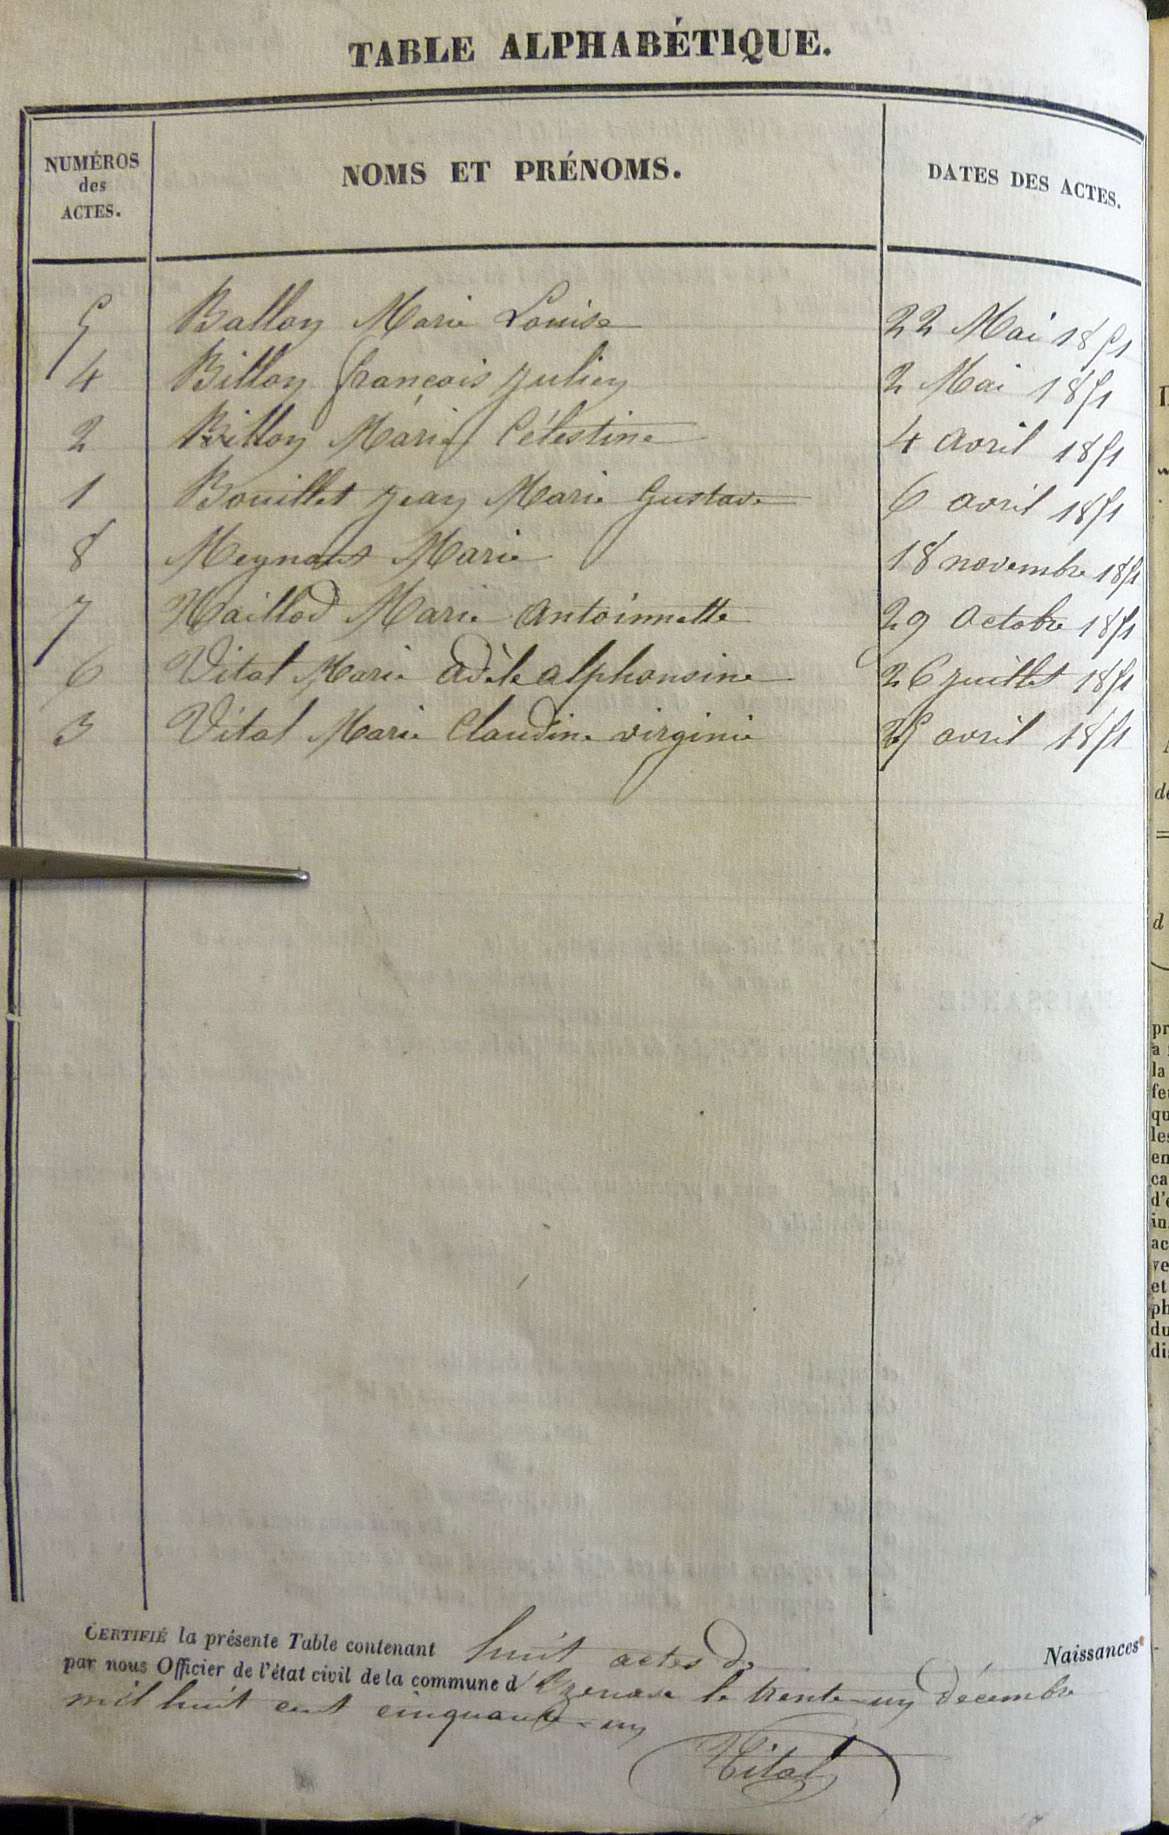 TABLE ALPHABÉTIQUE.
NUMÉROS des ACTES. NOMS ET PRÉNOMS. DATES DES ACTES.
5 Ballon Marie Louise 22 Mai 1851
4 Billon françois julien 2 Mai 1851
2 Billon Marie Célestine 4 avril 1851
1 Bouillet jean Marie Gustave 6 avril 1851
8 Meynant Marie 18 novembre 1851
7 Naillod Marie Antoinnette 29 Octobre 1851
6 Vital Marie adèle alphonsine 26 juillet 1851
3 Vital Marie Claudine virginie 25 avril 1851
CERTIFIÉ la présente Table contenant huit actes de Naissances
par nous Officier de l'état civil de la commune d' le trente-un décembre
mil huit cent cinquante-un
Vital